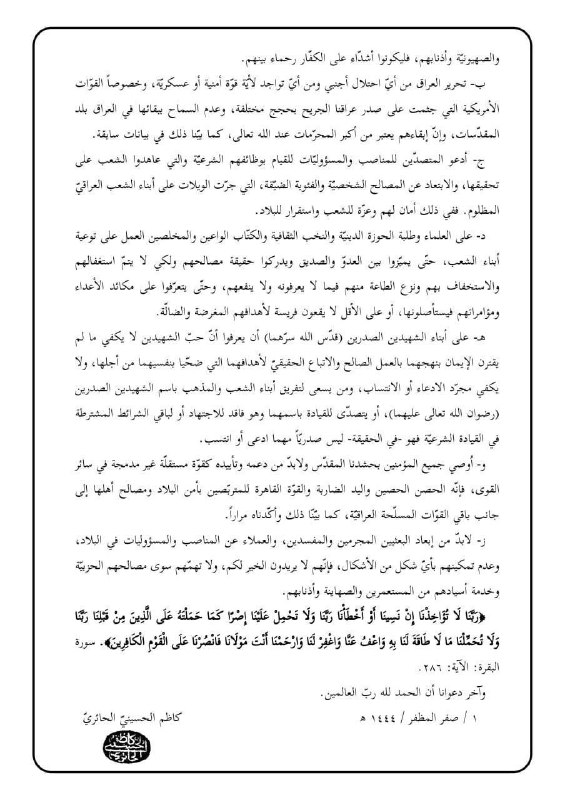 والصهيونيّة وأذنابهم، فليكونوا أشدّاء على الكفّار رحماء بينهم.
ب- تحرير العراق من أيّ احتلال أجنبي ومن أيّ تواجد لأيّة قوّة أمنية أو عسكريّة، وخصوصاً القوّات
الأمريكية التي جثمت على صدر عراقنا الجريح بحجج مختلفة، وعدم السماح ببقائها في العراق بلد
المقدّسات، وإنّ إبقاءهم يعتبر من أكبر المحرّمات عند الله تعالى، كما بيّنا ذلك في بيانات سابقة.
ج- أدعو المتصدّين للمناصب والمسؤوليّات للقيام بوظائفهم الشرعيّة والتي عاهدوا الشعب على
تحقيقها، والابتعاد عن المصالح الشخصيّة والفئوية الضيّقة، التي جرّت الويلات على أبناء الشعب العراقيّ
المظلوم. ففي ذلك أمان لهم وعزّة للشعب واستقرار للبلاد.
د- على العلماء وطلبة الحوزة الدينيّة والنخب الثقافية والكتّاب الواعين والمخلصين العمل على توعية
أبناء الشعب، حتّى يميّزوا بين العدوّ والصديق ويدركوا حقيقة مصالحهم ولكي لا يتمّ استغفالهم
والاستخفاف بهم ونوع الطاعة منهم فيما لا يعرفونه ولا ينفعهم، وحتّى يتعرّفوا على مكائد الأعداء
ومؤامراتهم فيستأصلونها، أو على الأقل لا يقعون فريسة لأهدافهم المغرضة والضالّة.
هـ- على أبناء الشهيدين الصدرين (قدّس الله سرّهما) أن يعرفوا أنّ حبّ الشهيدين لا يكفي ما لم
يقترن الإيمان بنهجهما بالعمل الصالح والاتباع الحقيقيّ لأهدافهما التي ضحّيا بنفسيهما من أجلها، ولا
يكفي مجرّد الادعاء أو الانتساب، ومن يسعى لتفريق أبناء الشعب والمذهب باسم الشهيدين الصدرين
(رضوان الله تعالى عليهما)، أو يتصدّى للقيادة باسمهما وهو فاقد للاجتهاد أو لباقي الشرائط المشترطة
في القيادة الشرعيّة فهو -في الحقيقة- ليس صدريّاً مهما ادعى أو انتسب.
و- أُوصي جميع المؤمنين بحشدنا المقدّس ولابدّ من دعمه وتأييده كقوّة مستقلّة غير مدمجة في سائر
القوى، فإنّه الحصن الحصين واليد الضاربة والقوّة القاهرة للمتربّصين بأمن البلاد ومصالح أهلها إلى
جانب باقي القوّات المسلّحة العراقيّة، كما بيّنّا ذلك وأكّدناه مراراً.
ز- لابدّ من إبعاد البعثيين المجرمين والمفسدين، والعملاء عن المناصب والمسؤوليات في البلاد،
وعدم تمكينهم بأيّ شكل من الأشكال، فإنّهم لا يريدون الخير لكم، ولا تهمّهم سوى مصالحهم الحزبيّة
وخدمة أسيادهم من المستعمرين والصهاينة وأذنابهم.
﴿رَبَّنَا لَا تُؤَاخِذْنَا إِنْ نَسِينَا أَوْ أَخْطَأْنَا رَبَّنَا وَلَا تَحْمِلْ عَلَيْنَا إِصْرًا كَمَا حَمَلْتَهُ عَلَى الَّذِينَ مِنْ قَبْلِنَا رَبَّنَا
وَلَا تُحَمِّلْنَا مَا لَا طَاقَةَ لَنَا بِهِ وَاعْفُ عَنَّا وَاغْفِرْ لَنَا وَارْحَمْنَا أَنْتَ مَوْلَانَا فَانْصُرْنَا عَلَى الْقَوْمِ الْكَافِرِينَ﴾. سورة
البقرة: الآية: ٢٨٦.
وآخر دعوانا أن الحمد لله ربّ العالمين.
١ / صفر المظفر / ١٤٤٤ هـ كاظم الحسينيّ الحائريّ
كاظم الحسيني الحائري